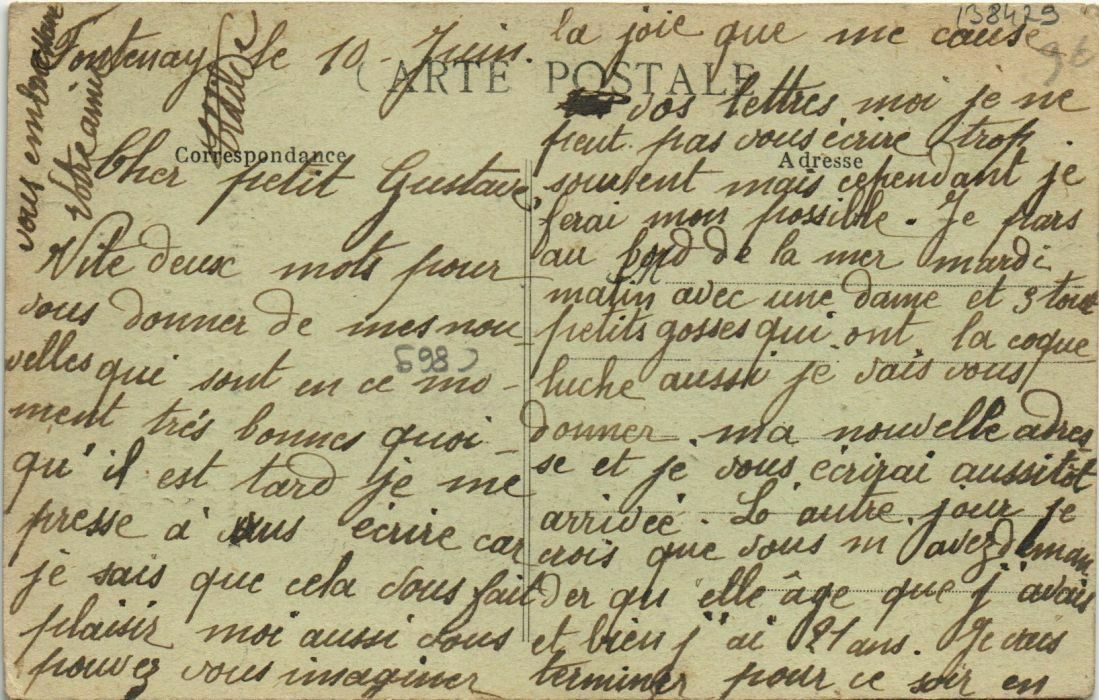 Fontenay le 10 Juin.
CARTE POSTALE
Correspondance
Cher petit Gustave
Vite deux mots pour
vous donner de mes nou-
velles qui sont en ce mo-
ment très bonnes quoi-
qu'il est tard je me
presse à vous écrire car
je sais que cela vous fait
plaisir moi aussi vous
pouvez vous imaginer
138429
9€
la joie que me cause
vos lettres moi je ne
peut pas vous écrire trop.
Adresse
souvent mais cependant je
ferai mon possible. Je pars
au bord de la mer mardi
matin avec une dame et 3 tout
petits gosses qui ont la coque
luche aussi je vais vous
donner ma nouvelle adres-
se et je vous écrirai aussitôt
arrivée. L'autre jour je
crois que vous m'avez deman
der qu'elle âge que j'avais
et bien j'ai 21 ans. Je vais
terminer pour ce soir en
vous embrassant
votre amie